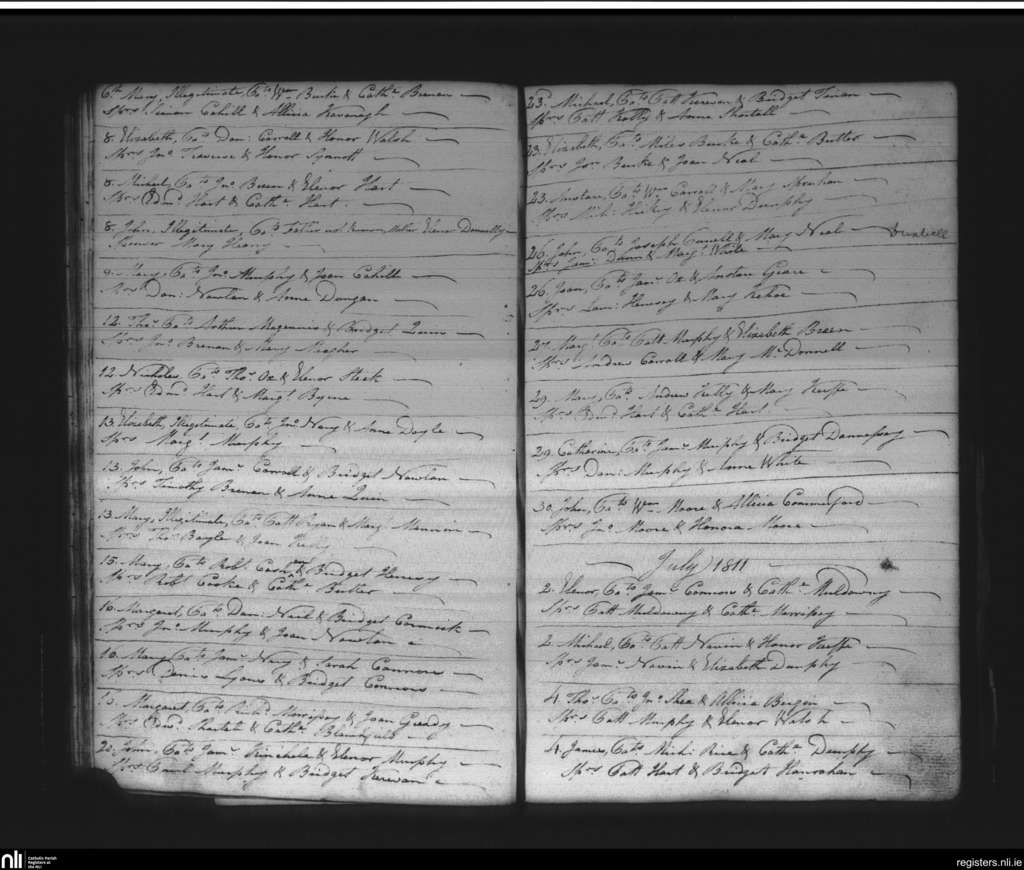 6th Mary, Illegitimate, Co to Wm Butler & Cathe Brenan
Sprs Simon Cahill & Allicia Kavanagh
8. Elizabeth, Co to Dan: Carroll & Honor Walsh
Sprs Jno Traverse & Honor Synott
8. Michael, Co to Jno Breen & Elenor Hart
Sprs Edmd Hart & Cathe Hart
8. John, Illegitimate, Co to Father not known, Mother Elenor Donnelly
Mary
Mary, Co to Jno Murphy & Joan Cahill
Sprs Dan: Nowlan & Anne Dongan
12. Thos Co to Arthur Magennis & Bridget
Sprs Jno Brenan & Mary Meagher
12. Nicholas, Co to Thos Ox & Elenor Fleck
Sprs Edmd Hart & Margt Byrne
13. Elizabeth, Illegitimate Co to Jno Nary & Anne Doyle
Sprs Margt Murphy
13. John, Co to Jams Carroll & Bridget Nowlan
Sprs Timothy Brenan & Anne Quin
13. Mary, Illegitimate, Co to Catt Ryan & Marg
Sprs Thos & Joan Kelly
15. Mary, Co to Robt & Bridget Hennesy
Sprs Robt Cooke & Cathe Butler
16. Margaret, Co to Dan: Neal & Bridget Cormick
Sprs Jno Murphy & Joan Nowlan
16. Mary Co to Jams Nary & Sarah Connors
Sprs Denis Lyons & Bridget Connors
Margaret, Co to Richd Morrissy & Joan Grady
Sprs Edwd & Cathe
John, Co to Jams & Elenor Murphy
Sprs Murphy & Bridget Kerevan
23. Michael, Co to Catt Kerevan & Bridget
Sprs Catt Kelly & Anne Shortall
23. Elizabeth, Co to Miles Burke & Cathe Butler
Sprs Jno Burke & Joan Neal
23. Anstan, Co to Wm Carroll & Mary
Sprs Mich: Hickey & Elenor Dumphy
26. John, Co to Joseph Connell & Mary Neal
Sprs Jams Dunn & Margt White
26. Joan, Co to Jams Ox & Anstan Grace
Sprs Hennesy & Mary Kehoe
27. Margt Co to Catt Murphy & Elizabeth Breen
Sprs Andrew Carroll & Mary McDonnell
29. Mary, Co to Andrew Kelly & Mary
Sprs Edmd Hart & Cathe Hart
29. Catherine, Co to Jams Murphy & Bridget
Sprs Dan: Murphy & Anne White
30. John, Co to Wm Moore & Allicia Commerford
Sprs Jno Moore & Honora Moore
July 1811
2. Elenor, Co to Jams Connors & Cathe Muldowny
Sprs Catt Muldowny & Cathe Morrissy
2. Michael, Co to Catt Nowin & Honor
Sprs Jams Nowin & Elizabeth Dumphy
4. Thos Co to Jno Shea & Allicia Bergin
Sprs Catt Murphy & Elenor Walsh
4. James, Co to Mich: Rice & Cathe Dumphy
Sprs Catt Hart & Bridget Hanrahan
nli
Catholic Parish
Registers at
the NLI
registers.nli.ie